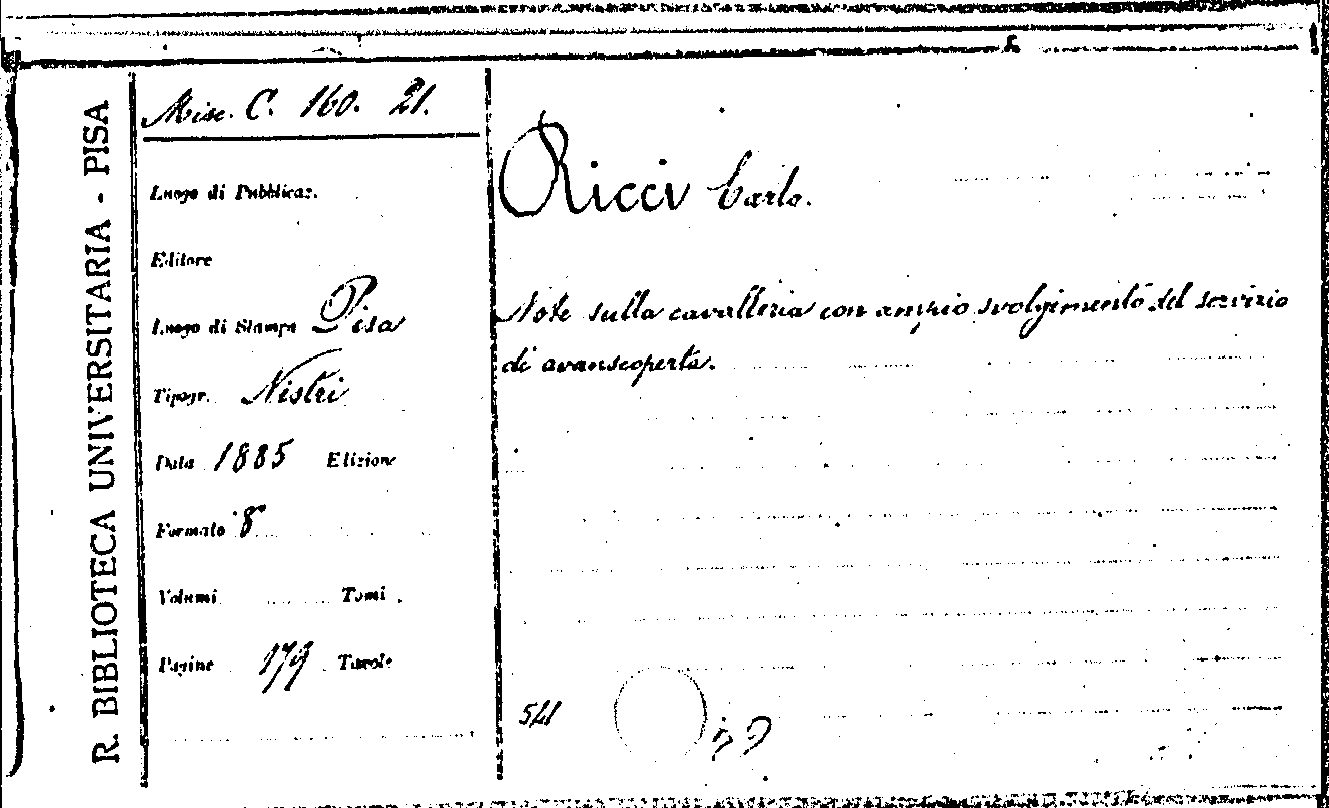 R. BIBLIOTECA UNIVERSITARIA - PISA
Misc. C. 160. 21.
Luogo di Pubblicaz.
Editore
Luogo di Stampa Pisa
Tipogr. Nistri
Data 1885 Edizione
Formato 8°
Volumi Tomi
Pagine 179 Tavole
Ricci Carlo.
Note sulla cavalleria con ampio svolgimento del servizio
di avanscoperta.